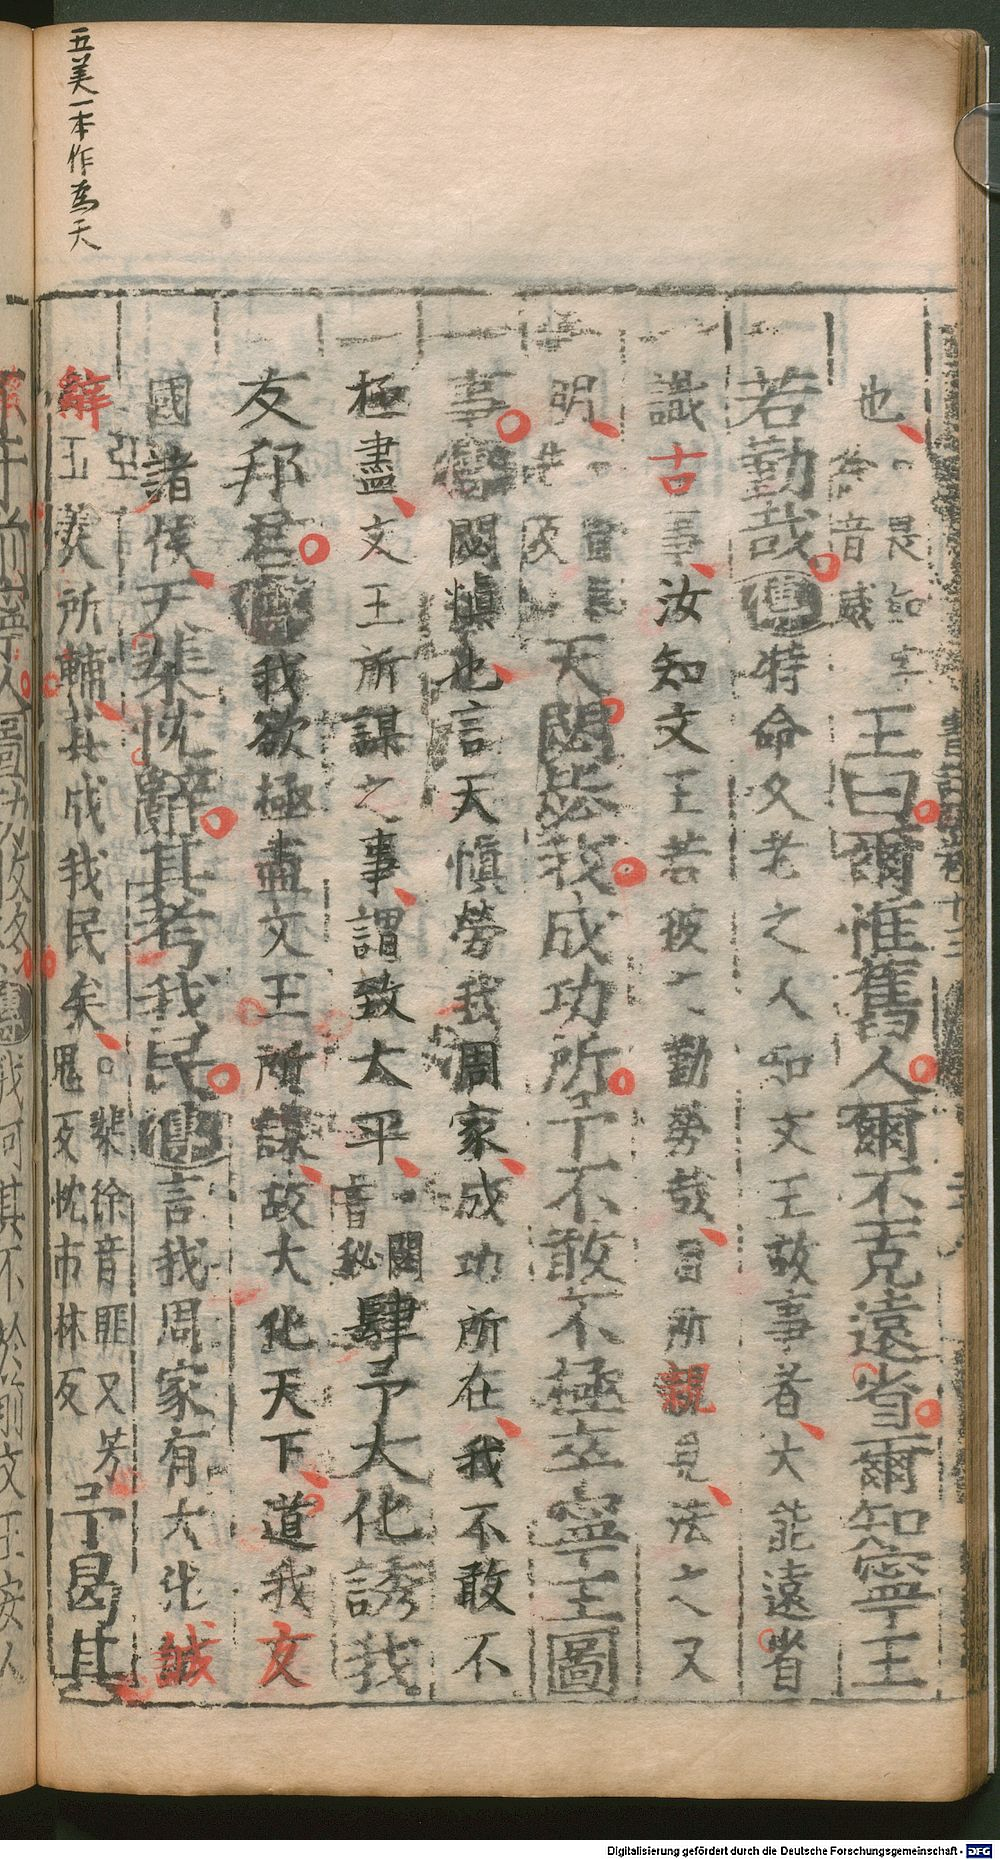 五美一本作為天
也畏如字徐音威王曰爾惟舊人爾不克遠省爾知寧王
若勤哉傳特命久老之人知文王故事者大能遠省
識古事汝知文王若彼之勤勞哉目所親見法之又
明 天閟毖我成功所予不敢不極卒寧王圖
事傳閟慎也言天慎勞我周家成功所在我不敢不
極盡文王所謀之事謂致太平閟音秘肆予大化誘我
友邦君傳我欲極盡文王所謀故大化天下道我友
國諸侯天棐忱辭其考我民傳言我周家有大化誠
辭 五美所輔其成我民矣棐徐音匪又芳鬼反忱市林反予曷其
Digitalisierung gefördert durch die Deutsche Forschungsgemeinschaft - DFG